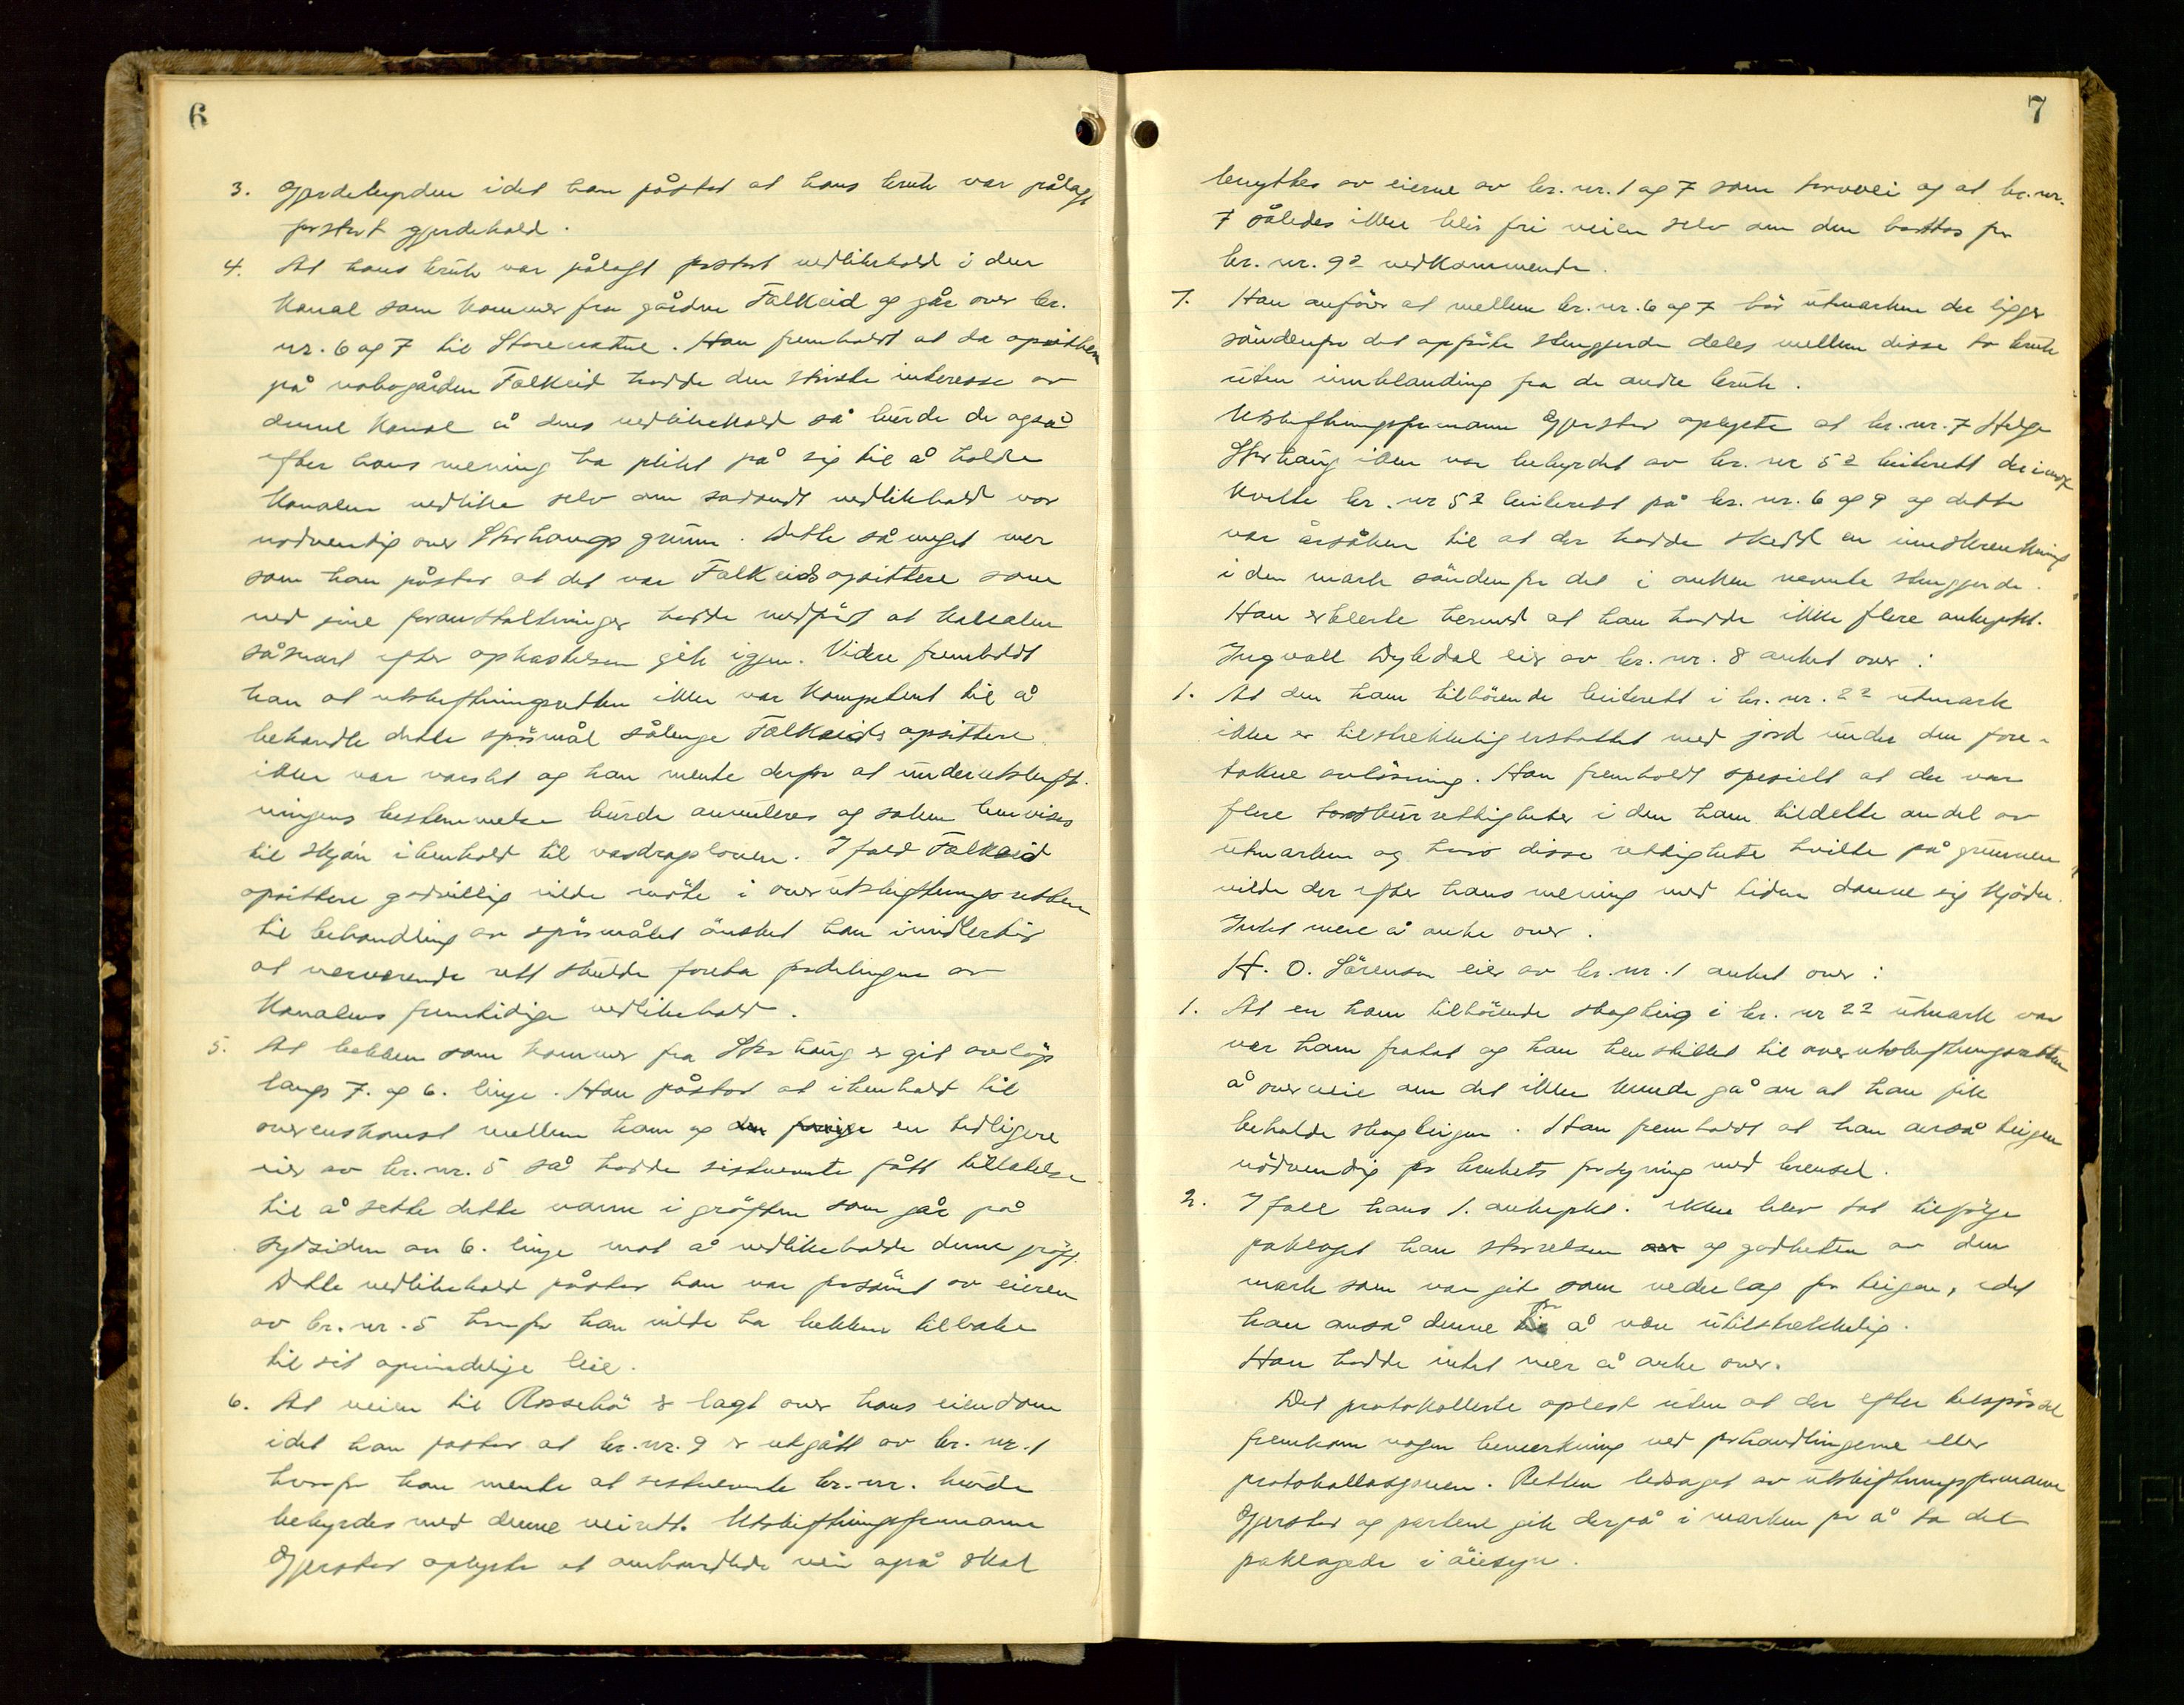 6
3. Gjerdebyrden idet han påstod at hans bruk var pålagt
forstort gjerdehold.
4. At hans bruk var pålagt forstort vedlikehold i den
kanal som kommer fra gården Falkeid og går over br.
nr. 6 og 7 til Storevatne. Han fremholdt at da opsitterne
på nabogården Falkeid hadde den største interesse av
denne kanal å dens vedlikehold så burde de også
efter hans mening ha plikt på sig til å holde
kanalen vedlike selv om sådandt vedlikehold var
nødvendig over Skrhaugs grunn. Dette så meget mer
som han påstod at det var Falkeids opsittere som
ved sine foranstaltninger hadde medført at kanalen
såsnart efter ophastelsen gik igjen. Videre fremholdt
han at utskiftningsretten ikke var kompetent til å
behandle dette spörsmål sålenge Falkeids opsittere
ikke var varslet og han mente derfor at underutskift-
ningens bestemmelse burde annuleres og saken henvises
til skjön i henhold til vasdragsloven. I fald Falkeid
opsittere godvillig vilde möte i overutskiftningsretten
til behandling av spörsmålet önsket han imidlertid
at nærværende rett skulde foreta fordelingen av
kanalens fremtidige vedlikehold.
5. At bekken som kommer fra Skrhaug er git avlöp
langs 7. og 6. linje. Han påstod at i henhold til
overenskomst mellem ham og den forrige en tidligere
eier av br. nr. 5 så hadde sistnevnte fått tillatelse
til å sette dette vann i gröften som går på
sydsiden av 6. linje mot å vedlikeholde denne gröft.
Dette vedlikehold påstod han var forsömt av eieren
av br. nr. 5 hvorfor han vilde ha bekken tilbake
til sit oprindelige leie.
6. At veien til Rossehö er lagt over hans eiendom
idet han påstod at br. nr. 9 er utgått av br. nr. 1
hvorfor han mente at sistnevnte br. nr. burde
bebyrdes med denne veirett. Utskiftningsformann
Gjerstad oplyste at omhandlede vei også skal
7
benyttes av eierne av br. nr. 1 og 7 som torvvei og at br. nr.
7 således ikke blir fri veien selv om den borttas for
br. nr. 9² vedkommende.
7. Han anförer at mellem br. nr. 6 og 7 bör utmarken der ligger
söndenfor det opförte stengjerde deles mellem disse to bruk
uten innblanding fra de andre bruk.
Utskiftningsformann Gjerstad oplyste at br. nr. 7 Helge
Skrhaug ikke var bebyrdet av br. nr 5² beiterett derimot
hvilte br. nr 5² beiterett på br. nr. 6 og 9 og dette
var årsaken til at der hadde skedd en innskrenkning
i den mark söndenfor det i anken nevnte stengjerde.
Han erklerte hermed at han hadde ikke flere ankepkt.
Ingvall Dybdal eier av br. nr. 8 anket over:
1. At den ham tilhörende beiterett i br. nr. 2² utmark
ikke er tilstrekkelig erstattet med jord under den fore-
takne avlösning. Han fremholdt spesielt at der var
flere torvskurrettigheter i den ham tildelte andel av
utmarken og hvis disse rettigheter hvilte på grunnen
vilde der efter hans mening med tiden danne sig kjöder.
Intet mere å anke over.
H. O. Sörensen eier av br. nr. 1 anket over:
1. At en ham tilhörende skogteig i br. nr 2² utmark var
var ham fratat og han henstillet til overutskiftningsretten
å overveie om det ikke kunde gå an at han fik
beholde skogteigen. Han fremholdt at han anså teigen
nödvendig for brukets forsyning med brensel.
2. I fall hans 1. ankepkt. ikke blev tat tilfölge
påklaget han störrelsen av og godheten av den
mark som var git som vederlag for teigen, idet
han anså denne til for å være utilstrekkelig.
Han hadde intet mer å anke over.
Det protokollerte oplest uten at der efter tilspörsel
fremkom nogen bemerkning ved forhandlingerne eller
protokollasjonen. Retten ledsaget av utskiftningsformann
Gjerstad og partene gik derpå i marken for å ta det
påklagede i öiesyn.